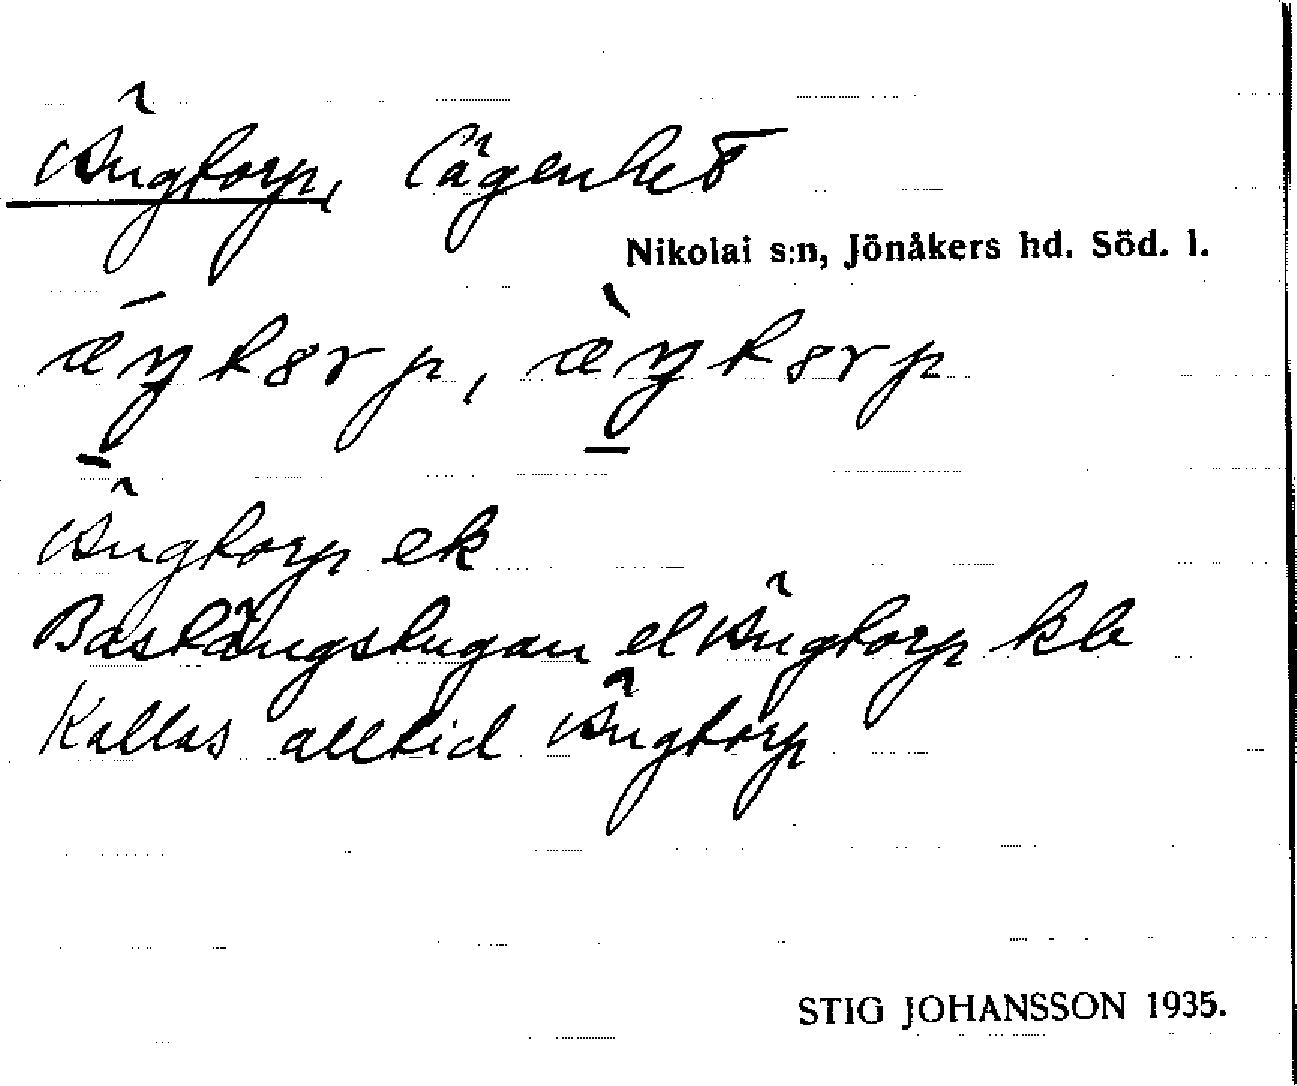 Ängtorp, lägenhet
Nikolai s:n, Jönåkers hd. Söd. l.
Ängtorp ek
Bastängstugan el Ängtorp kb
Kallas alltid Ängtorp
STIG JOHANSSON 1935.